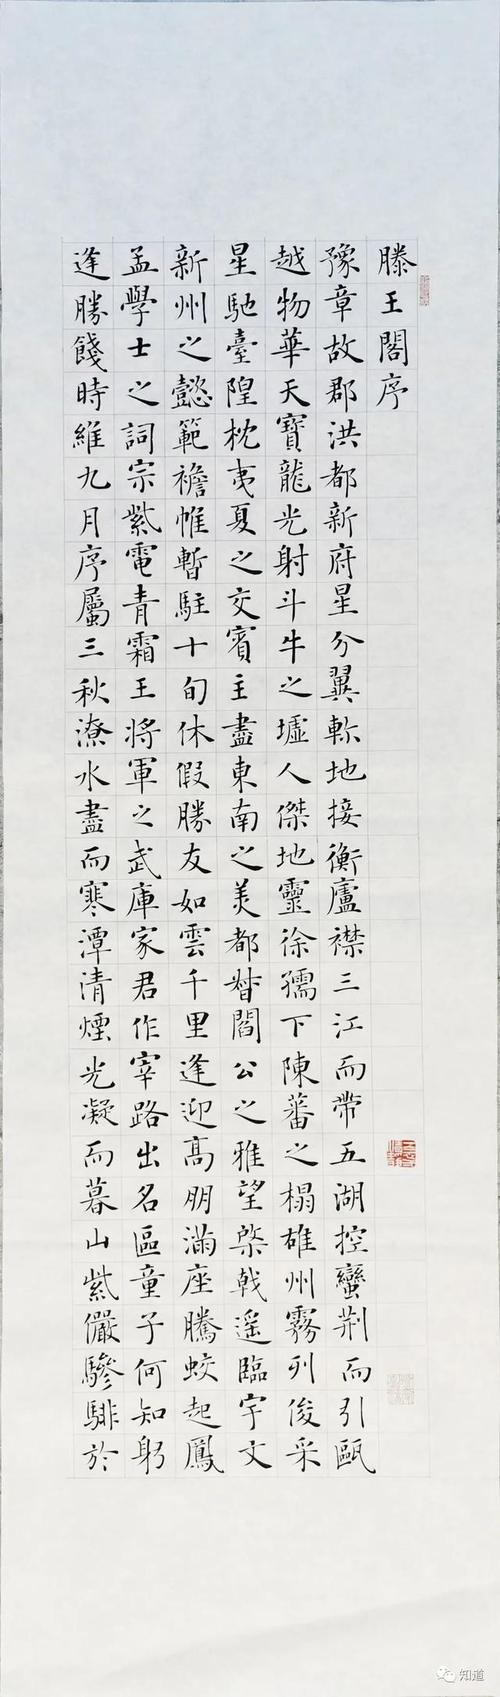 滕王閣序
豫章故郡洪都新府星分翼軫地接衡廬襟三江而帶五湖控蠻荊而引甌
越物華天寶龍光射斗牛之墟人傑地靈徐孺下陳蕃之榻雄州霧列俊采
星馳臺隍枕夷夏之交賓主盡東南之美都督閻公之雅望棨戟遙臨宇文
新州之懿範襜帷暫駐十旬休假勝友如雲千里逢迎高朋滿座騰蛟起鳳
孟學士之詞宗紫電青霜王將軍之武庫家君作宰路出名區童子何知躬
逢勝餞時維九月序屬三秋潦水盡而寒潭清煙光凝而暮山紫儼驂騑於
知道